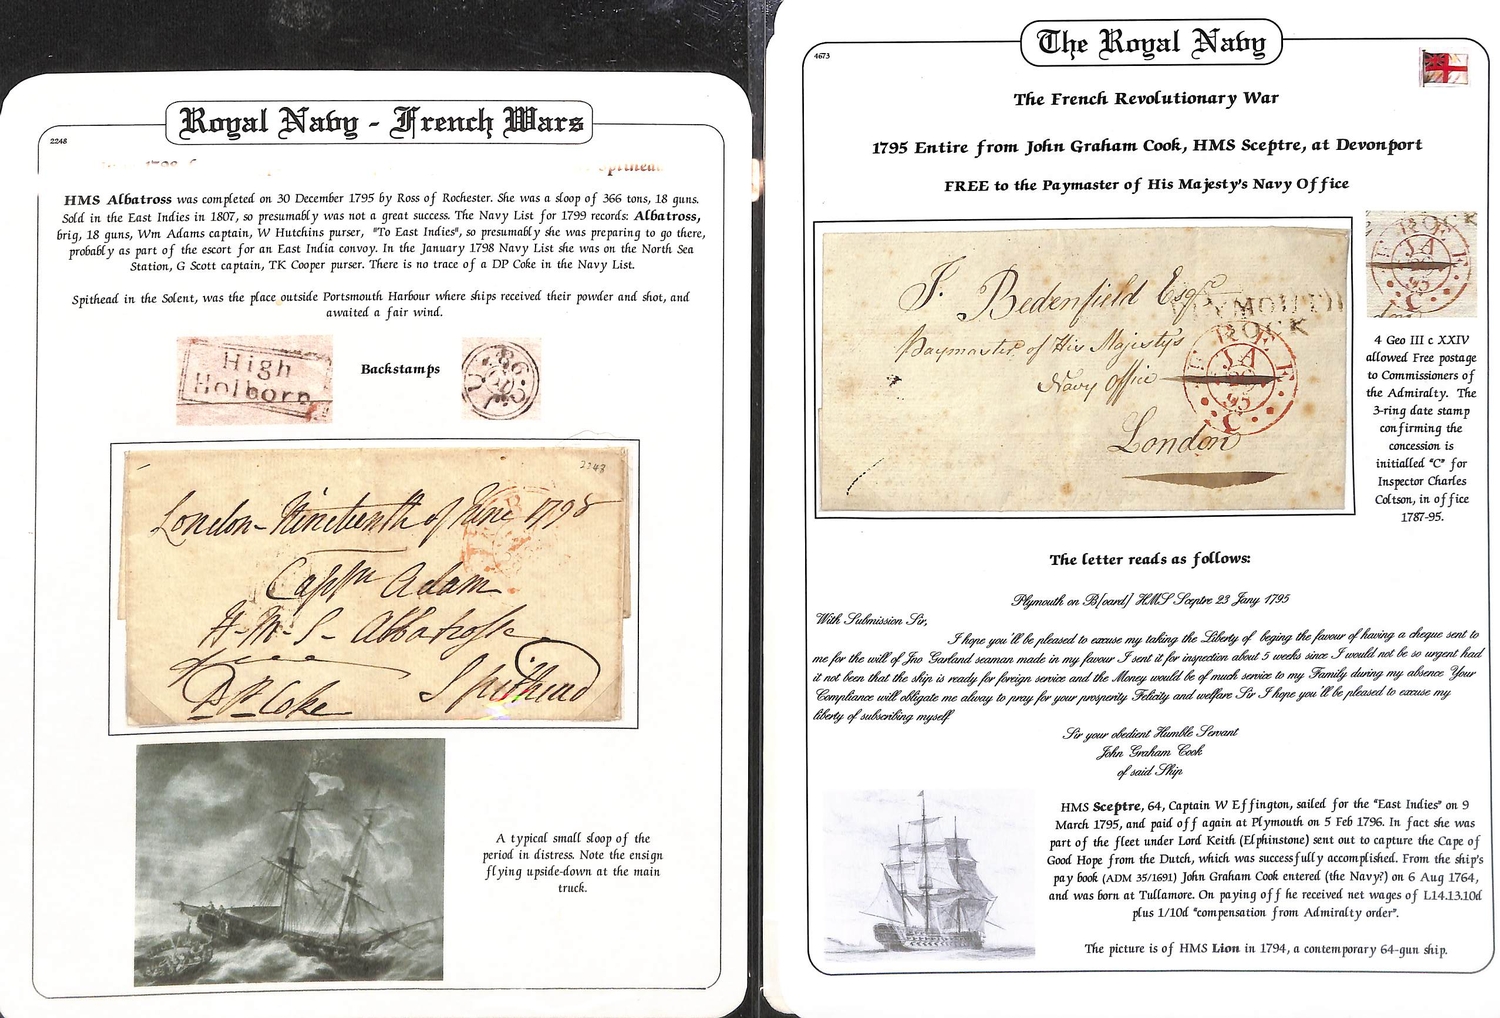 Royal Navy - French Wars
2248
HMS Albatross was completed on 30 December 1795 by Ross of Rochester. She was a sloop of 366 tons, 18 guns.
Sold in the East Indies in 1807, so presumably was not a great success. The Navy List for 1799 records: Albatross,
brig, 18 guns, Wm Adams captain, W Hutchins purser, "To East Indies", so presumably she was preparing to go there,
probably as part of the escort for an East India convoy. In the January 1798 Navy List she was on the North Sea
Station, G Scott captain, TK Cooper purser. There is no trace of a DP Coke in the Navy List.
Spithead in the Solent, was the place outside Portsmouth Harbour where ships received their powder and shot, and
awaited a fair wind.
High
Holborn
Backstamps
2248
London - Nineteenth of June 1798
Captn Adam
H.M.S - Albatrosse
Spithead
DP Coke
A typical small sloop of the
period in distress. Note the ensign
flying upside-down at the main
truck.
The Royal Navy
4673
The French Revolutionary War
1795 Entire from John Graham Cook, HMS Sceptre, at Devonport
FREE to the Paymaster of His Majesty's Navy Office
J. Bedenfield Esqr
PLYMOUTH
DOCK
Paymaster of His Majesty's
Navy Office
London
FREE
JA
95
C
4 Geo III c XXIV
allowed Free postage
to Commissioners of
the Admiralty. The
3-ring date stamp
confirming the
concession is
initialled "C" for
Inspector Charles
Coltson, in office
1787-95.
The letter reads as follows:
Plymouth on B[oard] HMS Sceptre 23 Jany 1795
With Submission Sir,
I hope you'll be pleased to excuse my taking the Liberty of beging the favour of having a cheque sent to
me for the will of Jno Garland seaman made in my favour I sent it for inspection about 5 weeks since I would not be so urgent had
it not been that the ship is ready for foreign service and the Money would be of much service to my Family during my absence Your
Compliance will obligate me alway to pray for your prosperity Felicity and welfare Sir I hope you'll be pleased to excuse my
liberty of subscribing myself
Sir your obedient Humble Servant
John Graham Cook
of said Ship
HMS Sceptre, 64, Captain W Effington, sailed for the "East Indies" on 9
March 1795, and paid off again at Plymouth on 5 Feb 1796. In fact she was
part of the fleet under Lord Keith (Elphinstone) sent out to capture the Cape of
Good Hope from the Dutch, which was successfully accomplished. From the ship's
pay book (ADM 35/1691) John Graham Cook entered (the Navy?) on 6 Aug 1764,
and was born at Tullamore. On paying off he received net wages of L14.13.10d
plus 1/10d "compensation from Admiralty order".
The picture is of HMS Lion in 1794, a contemporary 64-gun ship.